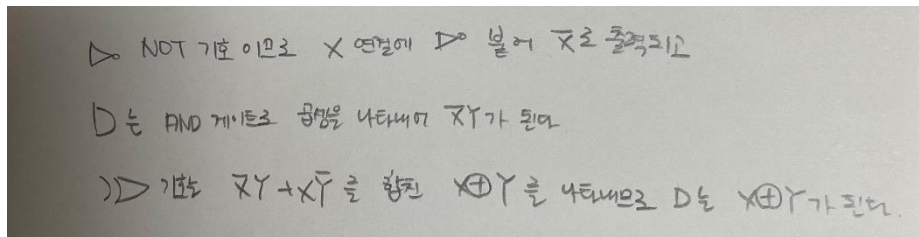 NOT 기호 이므로 X 연결에 붙어 X̅로 출력되고
D는 AND 게이트로 곱셈을 나타내어 X̅Y가 된다
기호는 X̅Y+XY̅를 합친 X⊕Y를 나타내므로 D는 X⊕Y가 된다.